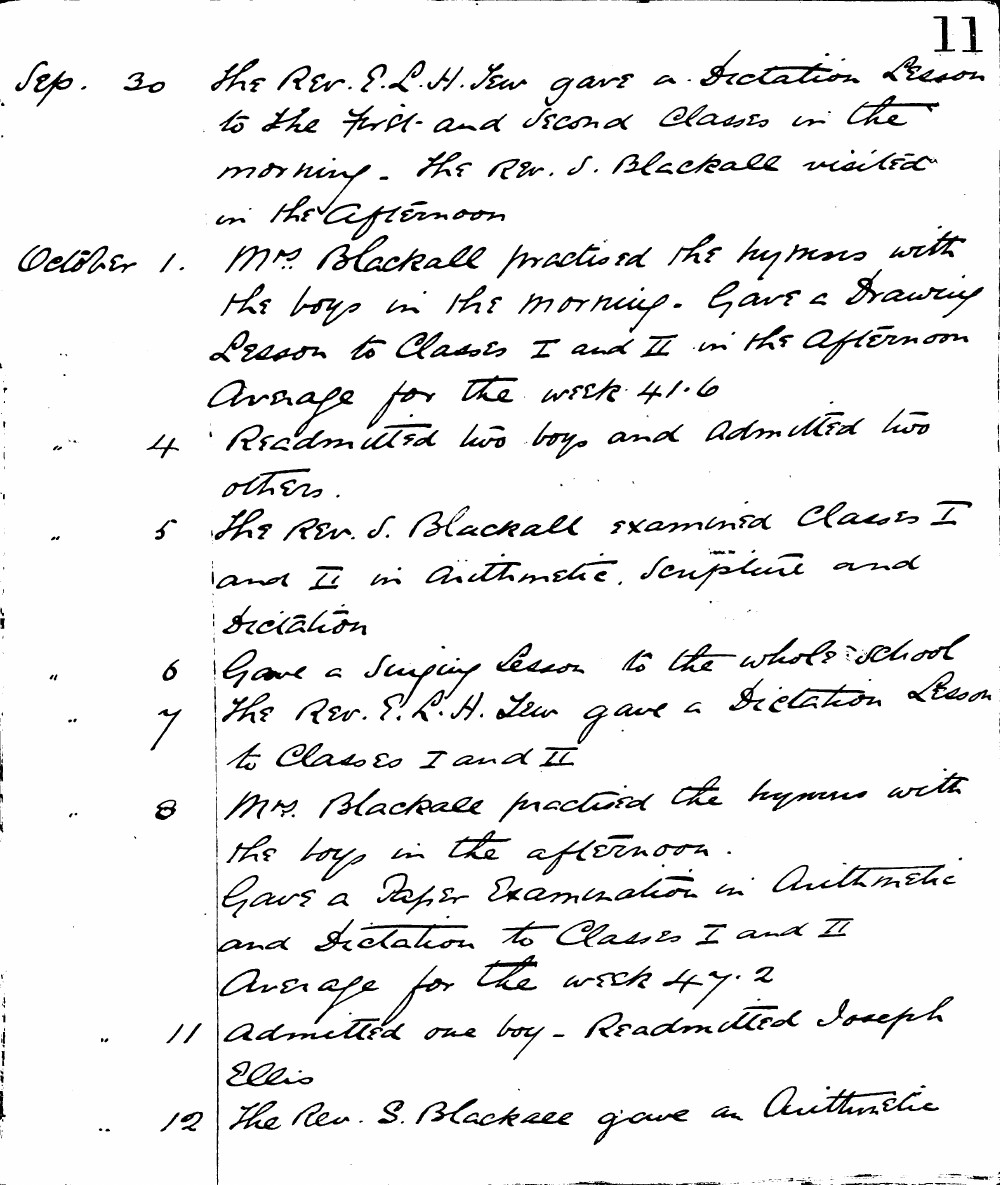 11
Sep. 30 The Rev. E. L. H. Tew gave a Dictation Lesson
to the First and Second Classes in the
morning - The Rev. S. Blackall visited
in the Afternoon
October 1. Mrs. Blackall practised the hymns with
the boys in the morning - Gave a Drawing
Lesson to Classes I and II in the Afternoon
Average for the week 41.6
" 4 Readmitted two boys and admitted two
others.
" 5 The Rev. S. Blackall examined Classes I
and II in Arithmetic, Scripture and
Dictation
" 6 Gave a Singing Lesson to the whole school
" 7 The Rev. E. L. H. Tew gave a Dictation Lesson
to Classes I and II
" 8 Mrs. Blackall practised the hymns with
the boys in the afternoon.
Gave a Paper Examination in Arithmetic
and Dictation to Classes I and II
Average for the week 47.2
" 11 Admitted one boy - Readmitted Joseph
Ellis
" 12 The Rev. S. Blackall gave an Arithmetic